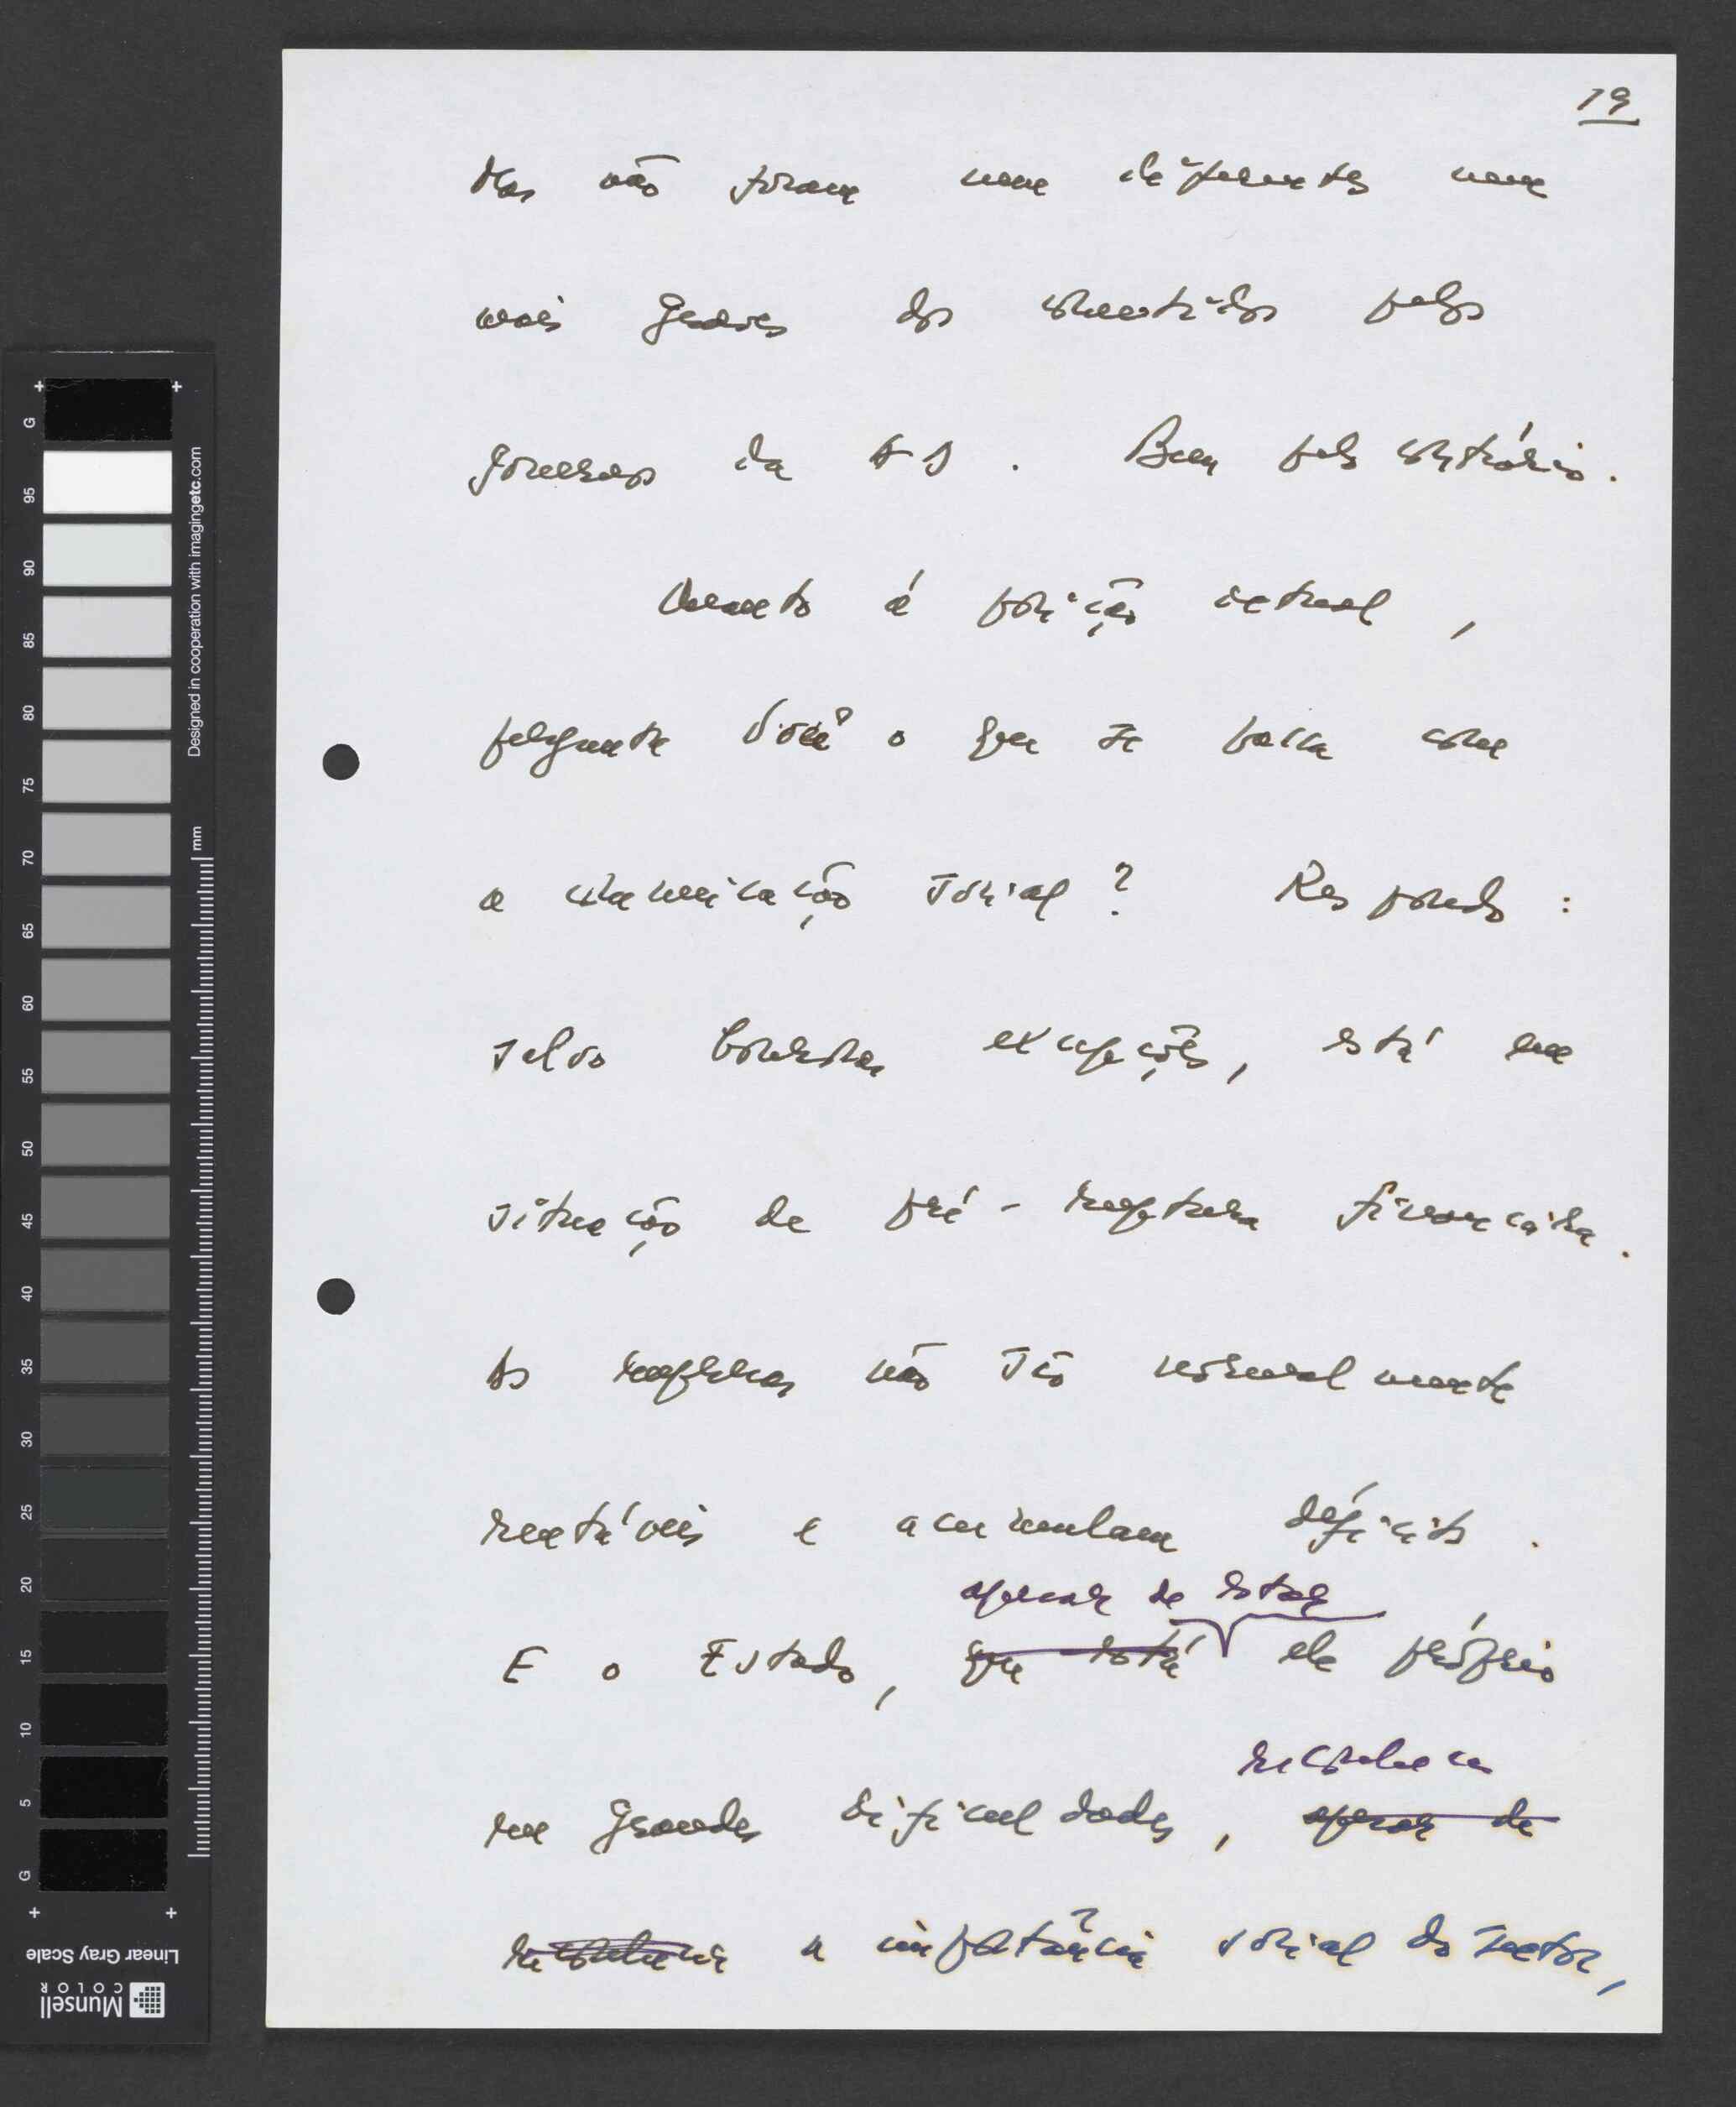 19
Mas não foram nem diferentes nem
mais graves dos cometidos pelos
governos da AD. Bem pelo contrário.
Quanto à posição actual,
pergunta você o que se passa com
a comunicação social? Respondo:
salvo honrosas excepções, está em
situação de pré-ruptura financeira.
As empresas não são normalmente
rentáveis e acumulam déficits.
apesar de estar
E o Estado, que está ele próprio
reconhecer
em grandes dificuldades, apesar de
reconhecer a importância social do sector,
G 95 90 85 80 75 70 65 60 55 50 45 40 35 30 25 20 15 10 5 G
Designed in cooperation with imagingetc.com
mm
Linear Gray Scale
Munsell
COLOR